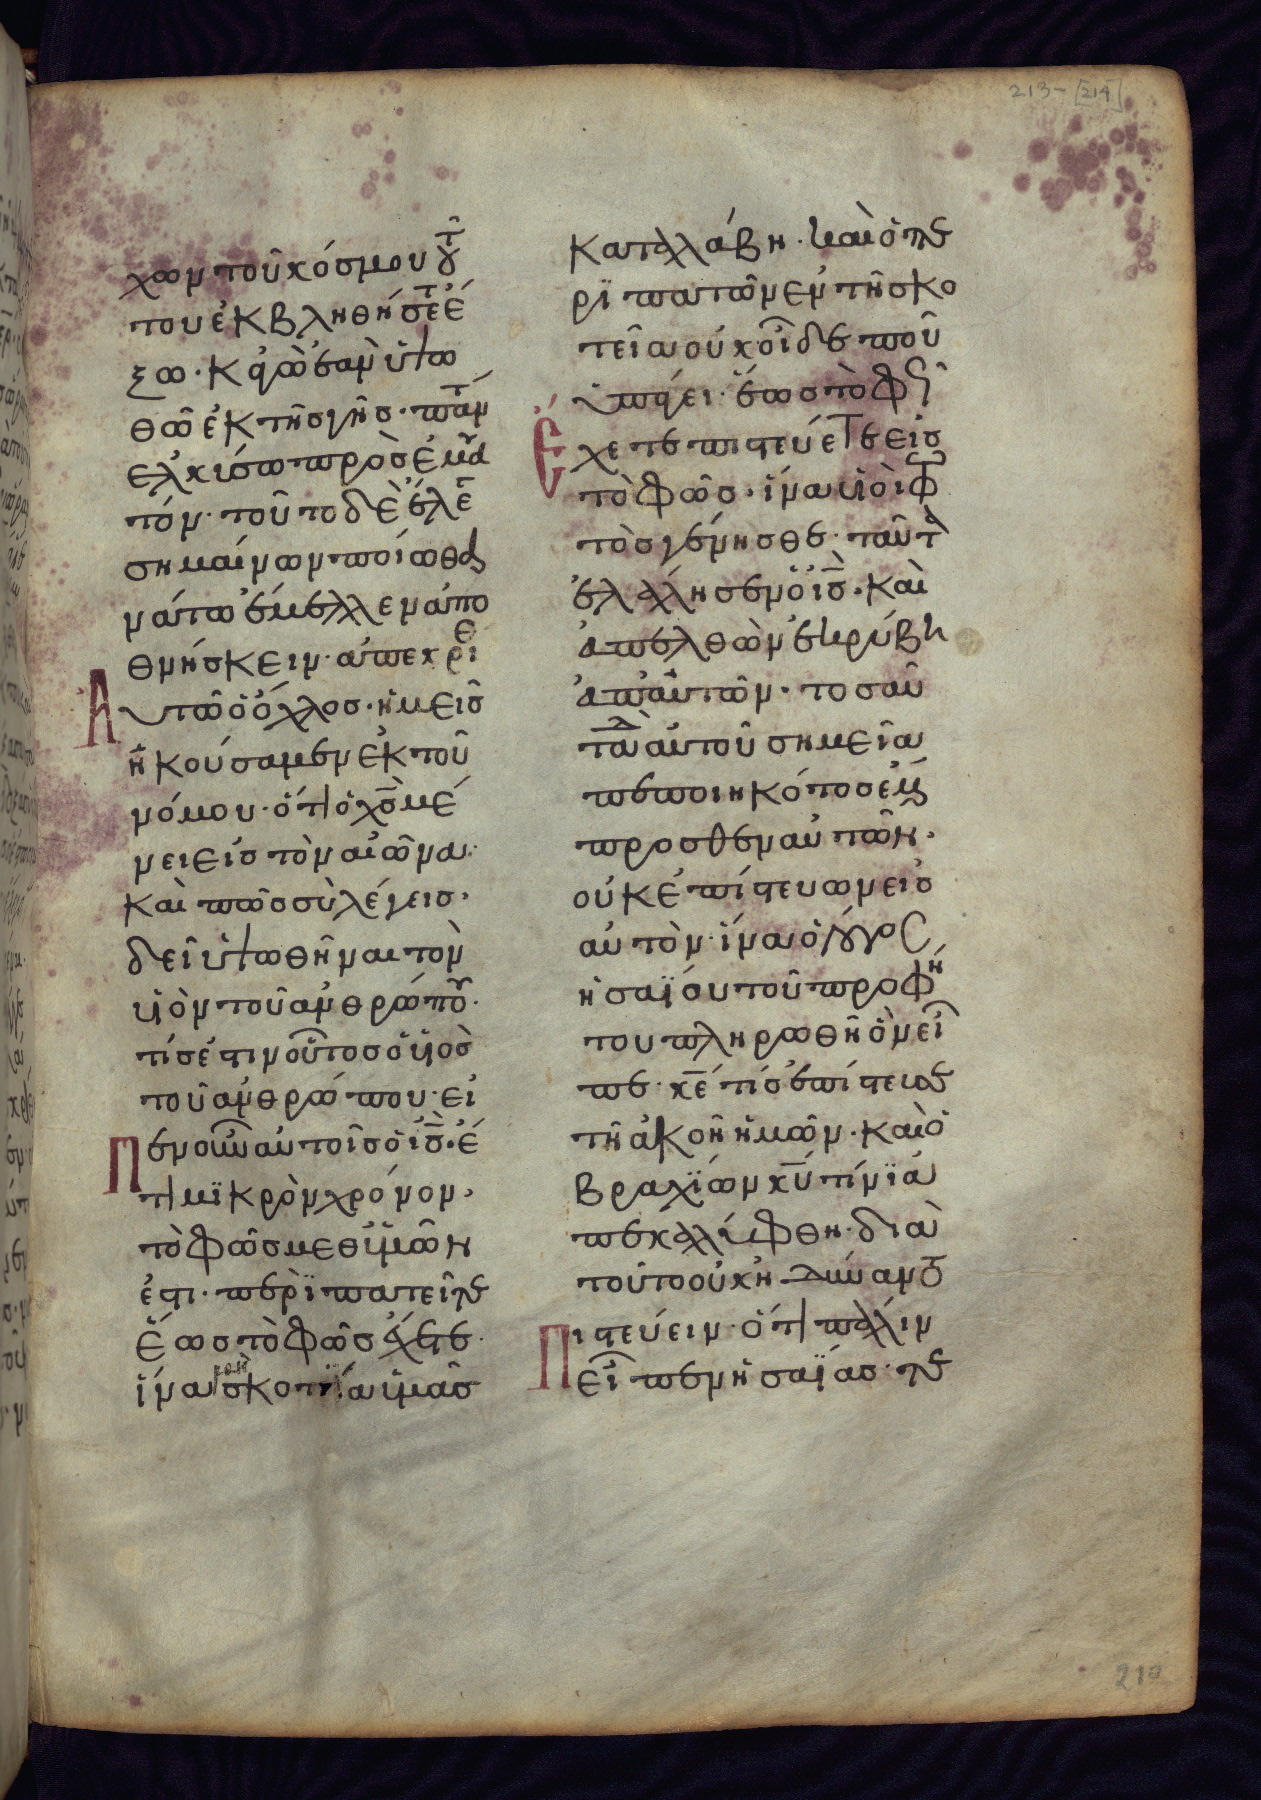 213 - [214]
χων τοῦ κόσμου τού
του ἐκβληθήσετ ἔ
ξω· κἀγὼ ἐὰν ὑψω
θῶ ἐκ τῆς γῆς· πάντ
ἑλκύσω πρὸς ἐμαυ
τόν· τοῦτο δὲ ἔλε
σημαίνων ποίω θα
νάτω ἔμελλεν ἀπο
θνήσκειν· ἀπεκρίθ
Αὐτῶ ὁ ὄχλος· ἡμεῖς
ἠκούσαμεν ἐκ τοῦ
νόμου· ὅτι ὁ χς μέ
νει εἰς τὸν αἰῶνα·
καὶ πῶς σὺ λέγεις·
δεῖ ὑψωθῆναι τὸν
υἱὸν τοῦ ἀνθρώπου·
τίς ἐστιν οὗτος ὁ υἱὸς
τοῦ ἀνθρώπου· εἶ
Πεν οὖν αὐτοῖς ὁ ις· ἔ
τι μϊκρὸν χρόνον·
τὸ φῶς μεθ ὑμῶν
ἐστι· περϊπατεῖτε
ἕως τὸ φῶς ἔχετε·
ἵνα μὴ σκοτία ὑμᾶς
καταλάβη· καὶ ὁ πε
ρϊπατῶν ἐν τῆ σκο
τεία οὐκ οἶδε ποῦ
ὑπάγει· ἕως τὸ φῶς
Ἔχετε πιστεύετε εἰς
τὸ φῶς· ἵνα υἱοὶ φω
τὸς γένησθε· ταῦτα
ἐλάλησεν ὁ ις· καὶ
ἀπελθὼν ἐκρύβη
ἀπ αὐτῶν· τοσαῦ
τα δὲ αὐτοῦ σημεῖα
πεποιηκότος ἐμ
προσθεν αὐτῶν·
οὐκ ἐπίστευων εἰς
αὐτὸν· ἵνα ὁ λόγος
ἠσαΐου τοῦ προφή
του πληρωθῆ ὃν εἶ
πε· κε τίς ἐπίστευσε
τῆ ἀκοῆ ἡμῶν· καὶ ὁ
βραχΐων κυ τίνϊ ἀ
πεκαλύφθη· διὰ
τοῦτο οὐκ ἠδύναντο
Πιστεύειν· ὅτι πάλιν
εἶπεν ἠσαΐας· τε
210